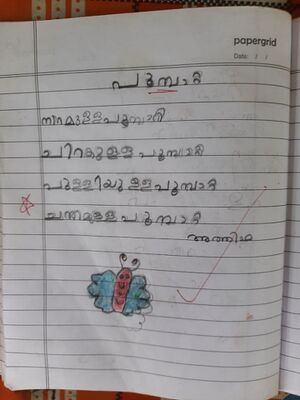 papergrid
Date: / /
പൂമ്പാറ്റ
നിറമുള്ള പൂമ്പാറ്റ
ചിറകുള്ള പൂമ്പാറ്റ
പുള്ളിയുള്ള പൂമ്പാറ്റ
ചന്തമുള്ള പൂമ്പാറ്റ
അത്തിഫ